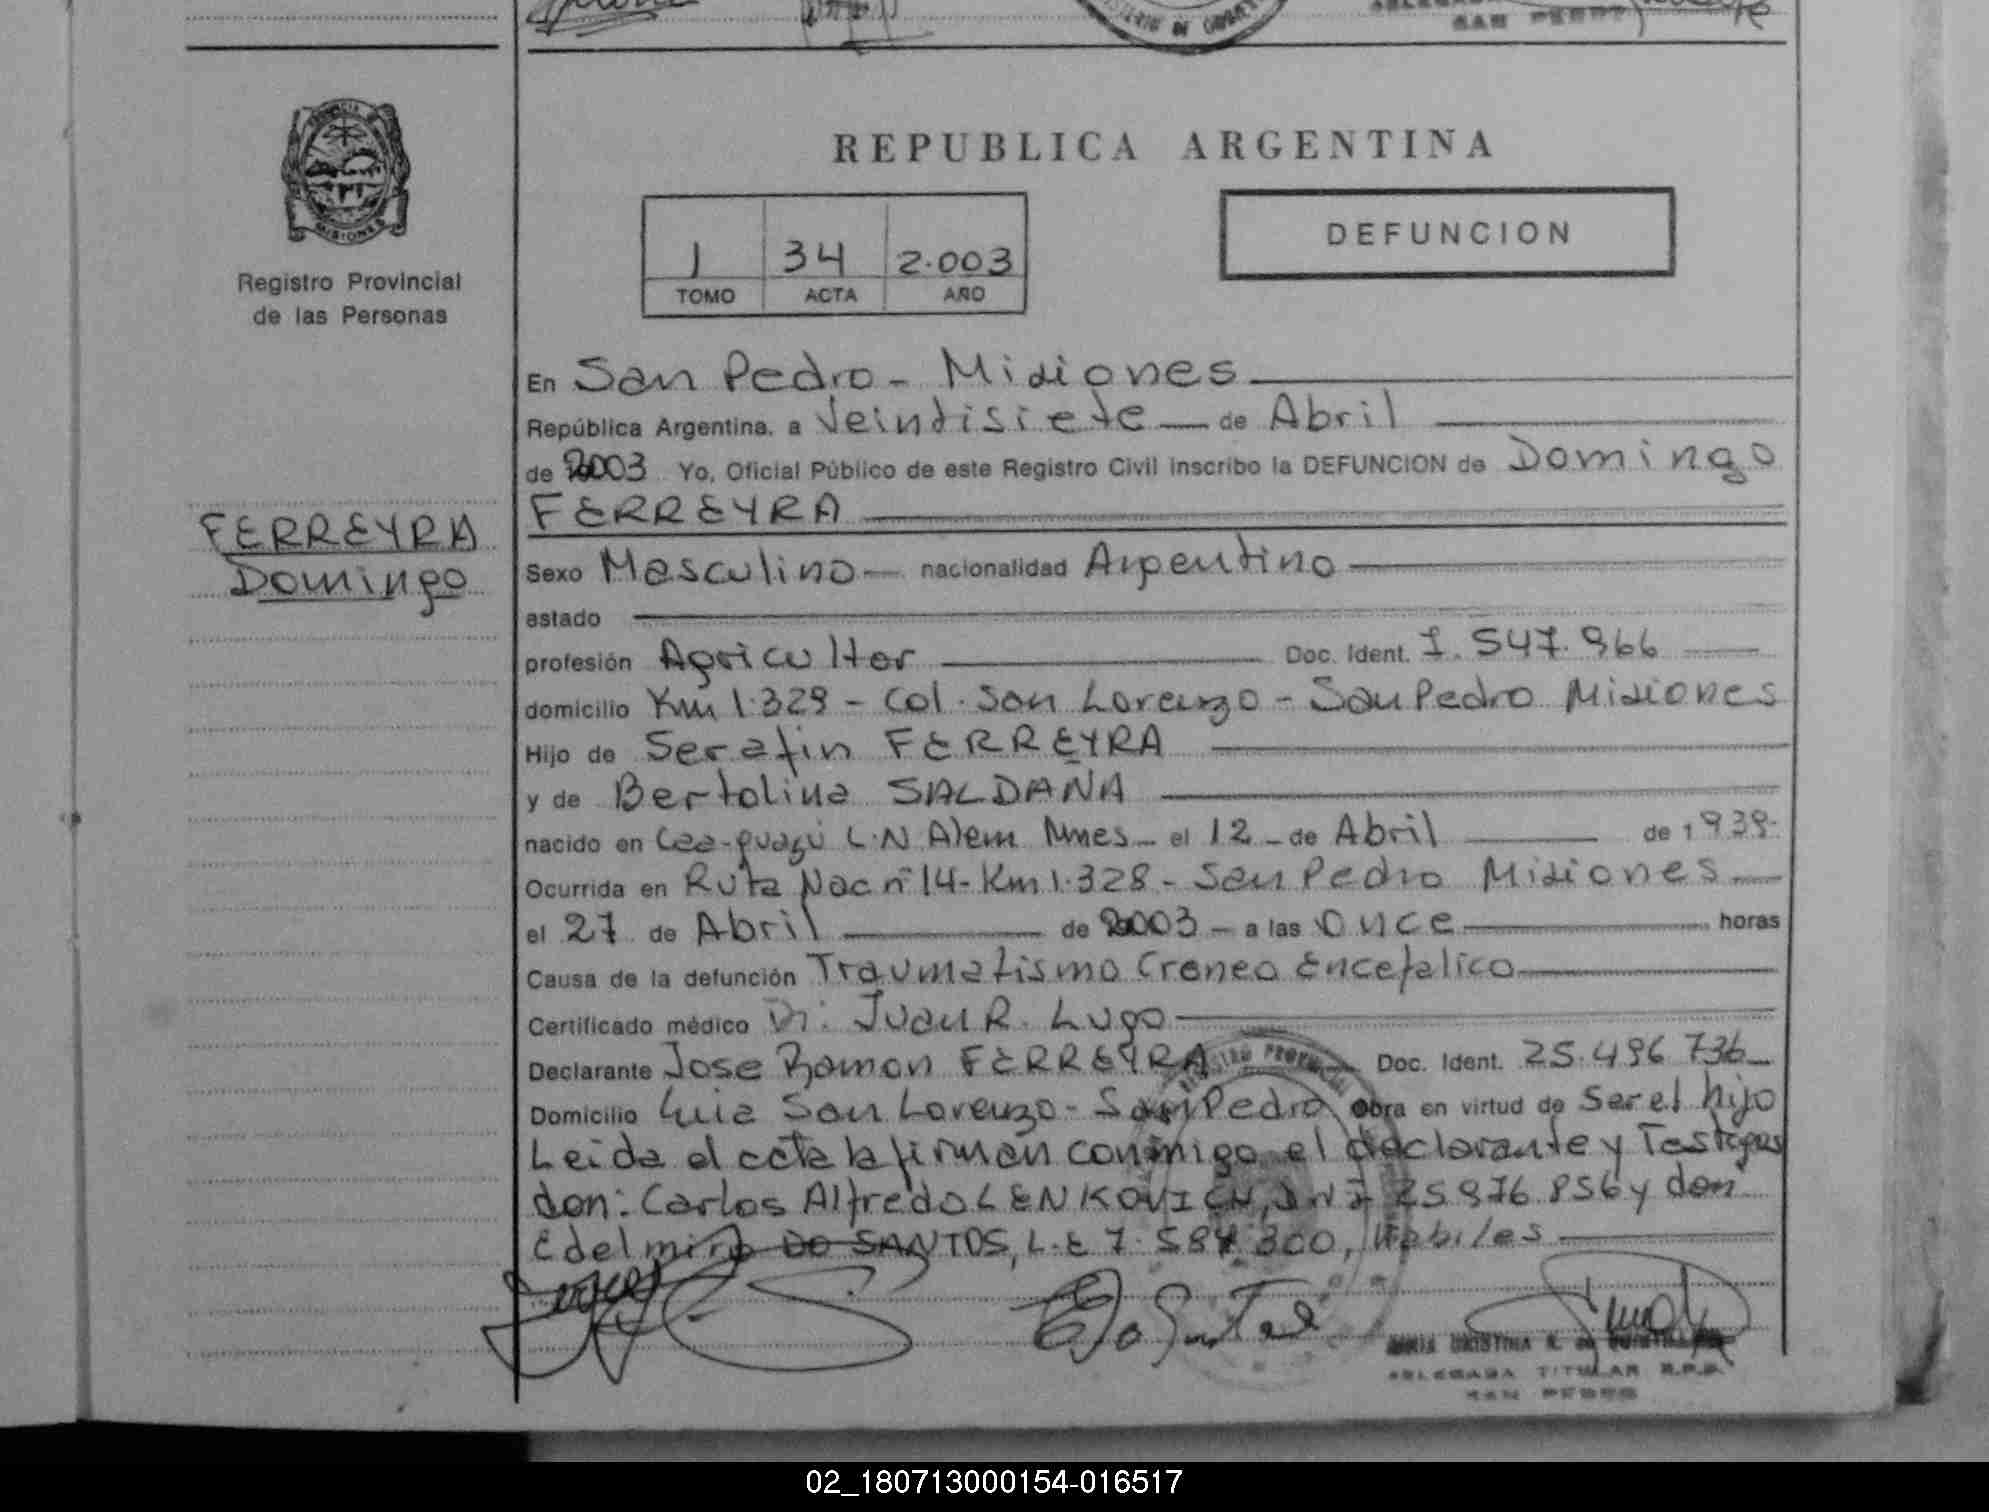 SAN PEDRO
PROVINCIA DE
MISIONES
Registro Provincial
de las Personas
FERREYRA
Domingo
REPUBLICA ARGENTINA
1 34 2.003
TOMO ACTA AÑO
DEFUNCION
En San Pedro - Misiones
República Argentina, a Veintisiete de Abril
de 2003 Yo, Oficial Público de este Registro Civil inscribo la DEFUNCION de Domingo
FERREYRA
Sexo Masculino nacionalidad Argentino
estado
profesión Agricultor Doc. Ident. 7.547.966
domicilio Km 1.329 - Col. San Lorenzo - San Pedro Misiones
Hijo de Serafin FERREYRA
y de Bertolina SALDAÑA
nacido en Caa-guazú L.N Alem Mnes - el 12 - de Abril de 1939.
Ocurrida en Ruta Nac nº 14 - Km 1.328 - San Pedro Misiones
el 27 de Abril de 2003 - a las Once horas
Causa de la defunción Traumatismo Craneo Encefalico
Certificado médico Dr. Juan R. Lugo
Declarante Jose Ramon FERREYRA Doc. Ident. 25.496 736
Domicilio San Lorenzo - San Pedro obra en virtud de Ser el hijo
Leida el acta la firman conmigo el declarante y Testigos
don: Carlos Alfredo LENKOVICH, D.N.I 25 976 856 y don
Edelmiro DO SANTOS, L.E 7.584 300, Habiles
REGISTRO PROVINCIAL
DELEGADA TITULAR R.P.P.
SAN PEDRO
02_180713000154-016517